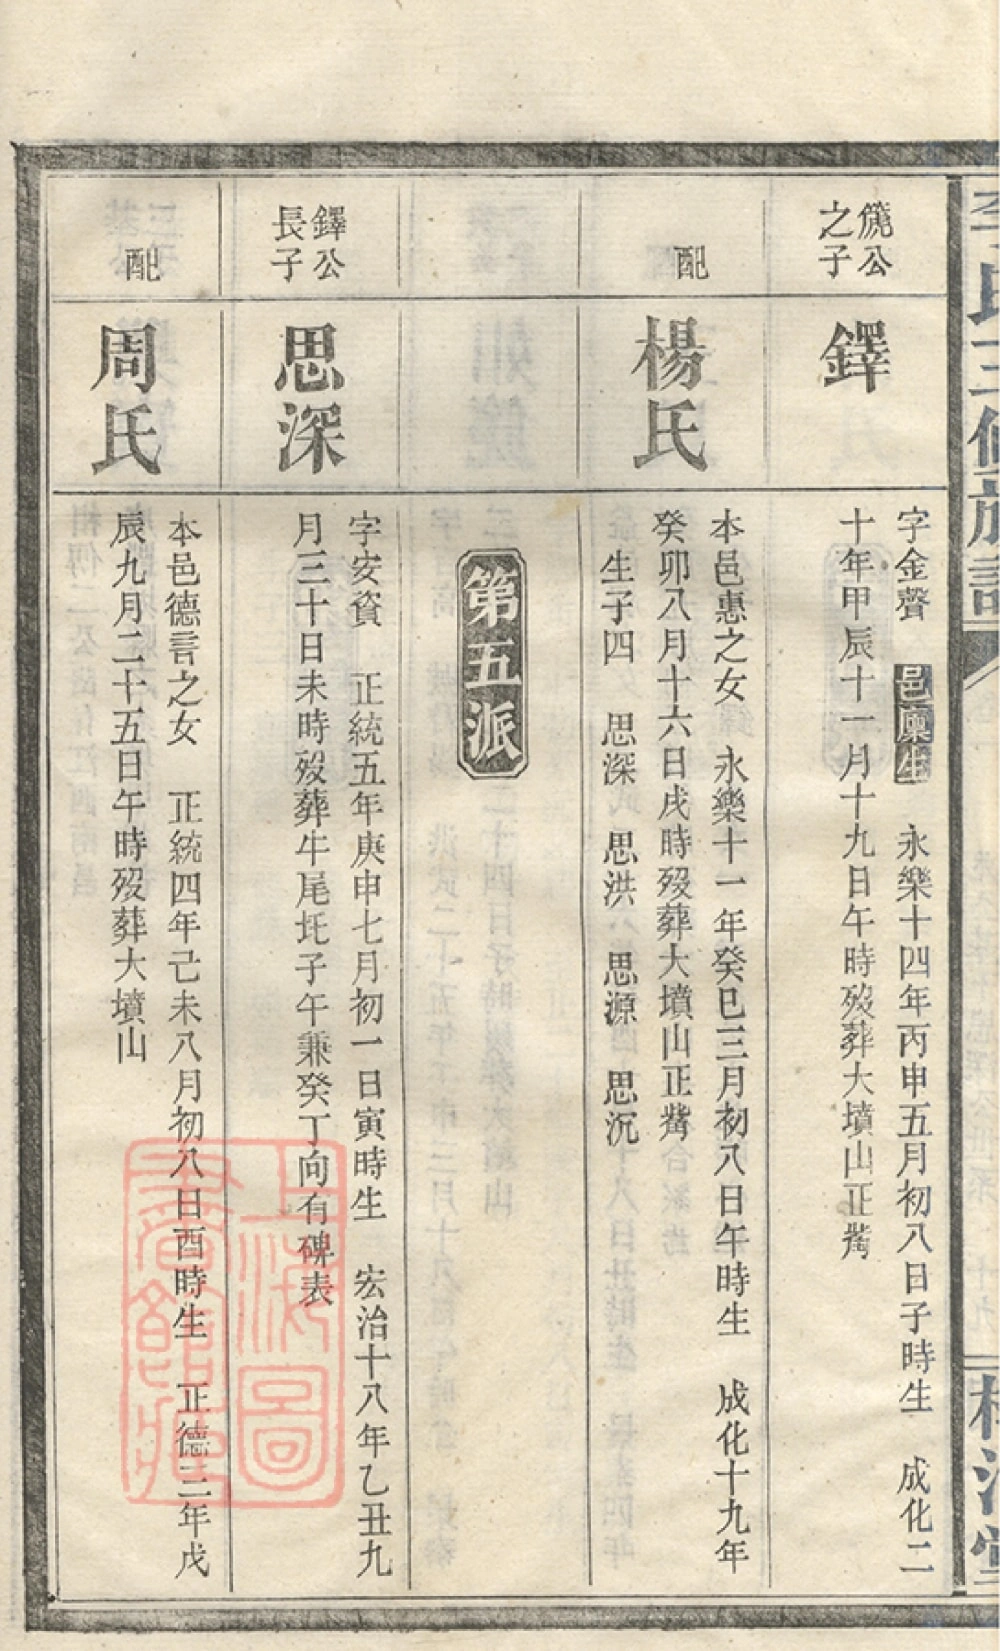 李氏三修族譜
公
之子
鐸
字金聲 邑廩生 永樂十四年丙申五月初八日子時生 成化二
十年甲辰十一月十九日午時歿葬大墳山正嘴
配
楊氏
本邑惠之女 永樂十一年癸巳三月初八日午時生 成化十九年
癸卯八月十六日戌時歿葬大墳山正嘴
生子四 思深 思洪 思源 思沉
第五派
鐸公
長子
思深
字安資 正統五年庚申七月初一日寅時生 宏治十八年乙丑九
月三十日未時歿葬牛尾圫子午兼癸丁向有碑表
配
周氏
本邑德言之女 正統四年己未八月初八日酉時生 正德三年戊
辰九月二十五日午時歿葬大墳山
上海圖
書館藏